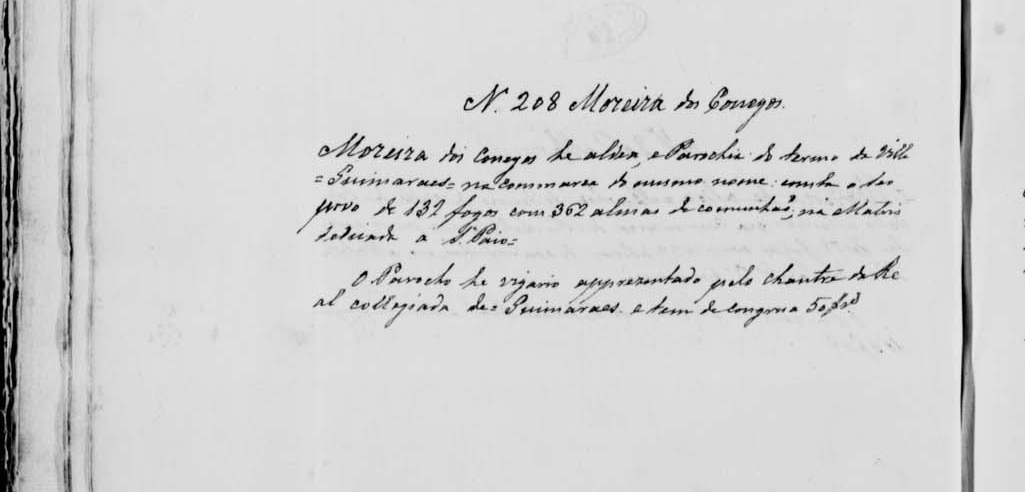 N. 208 Moreira dos Conegos.
Moreira dos Conegos he aldea, e Parochia do termo da Villa
= Guimaraes = na commarca do mesmo nome: consta o seu
povo de 132 fogos com 362 almas de comunhaõ, na Matris
dedicada a S. Paio =
O Parocho he vigario apprezentado pelo chantre da Re
al collegiada de = Guimaraes. e tem de congrua 50